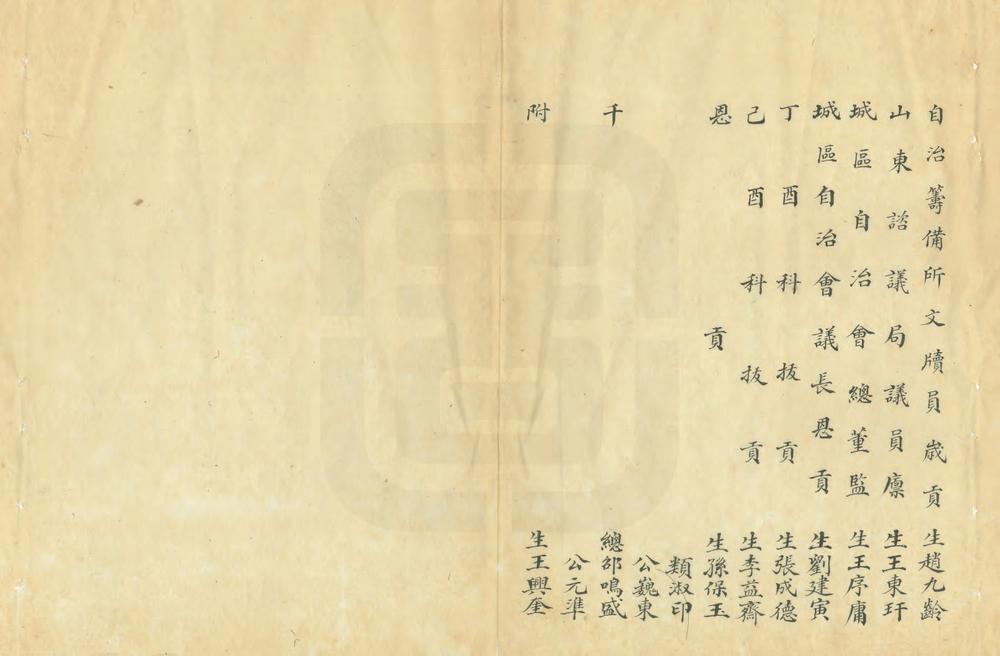 自治籌備所文牘員歲貢生趙九齡
山東諮議局議員廩生王東玕
城區自治會總董監生王序庸
城區自治會議長恩貢生劉建寅
丁酉科拔貢生張成德
己酉科拔貢生李益齋
恩貢生孫保玉
類淑印
公巍東
千總邵鳴盛
公元準
附生王興奎